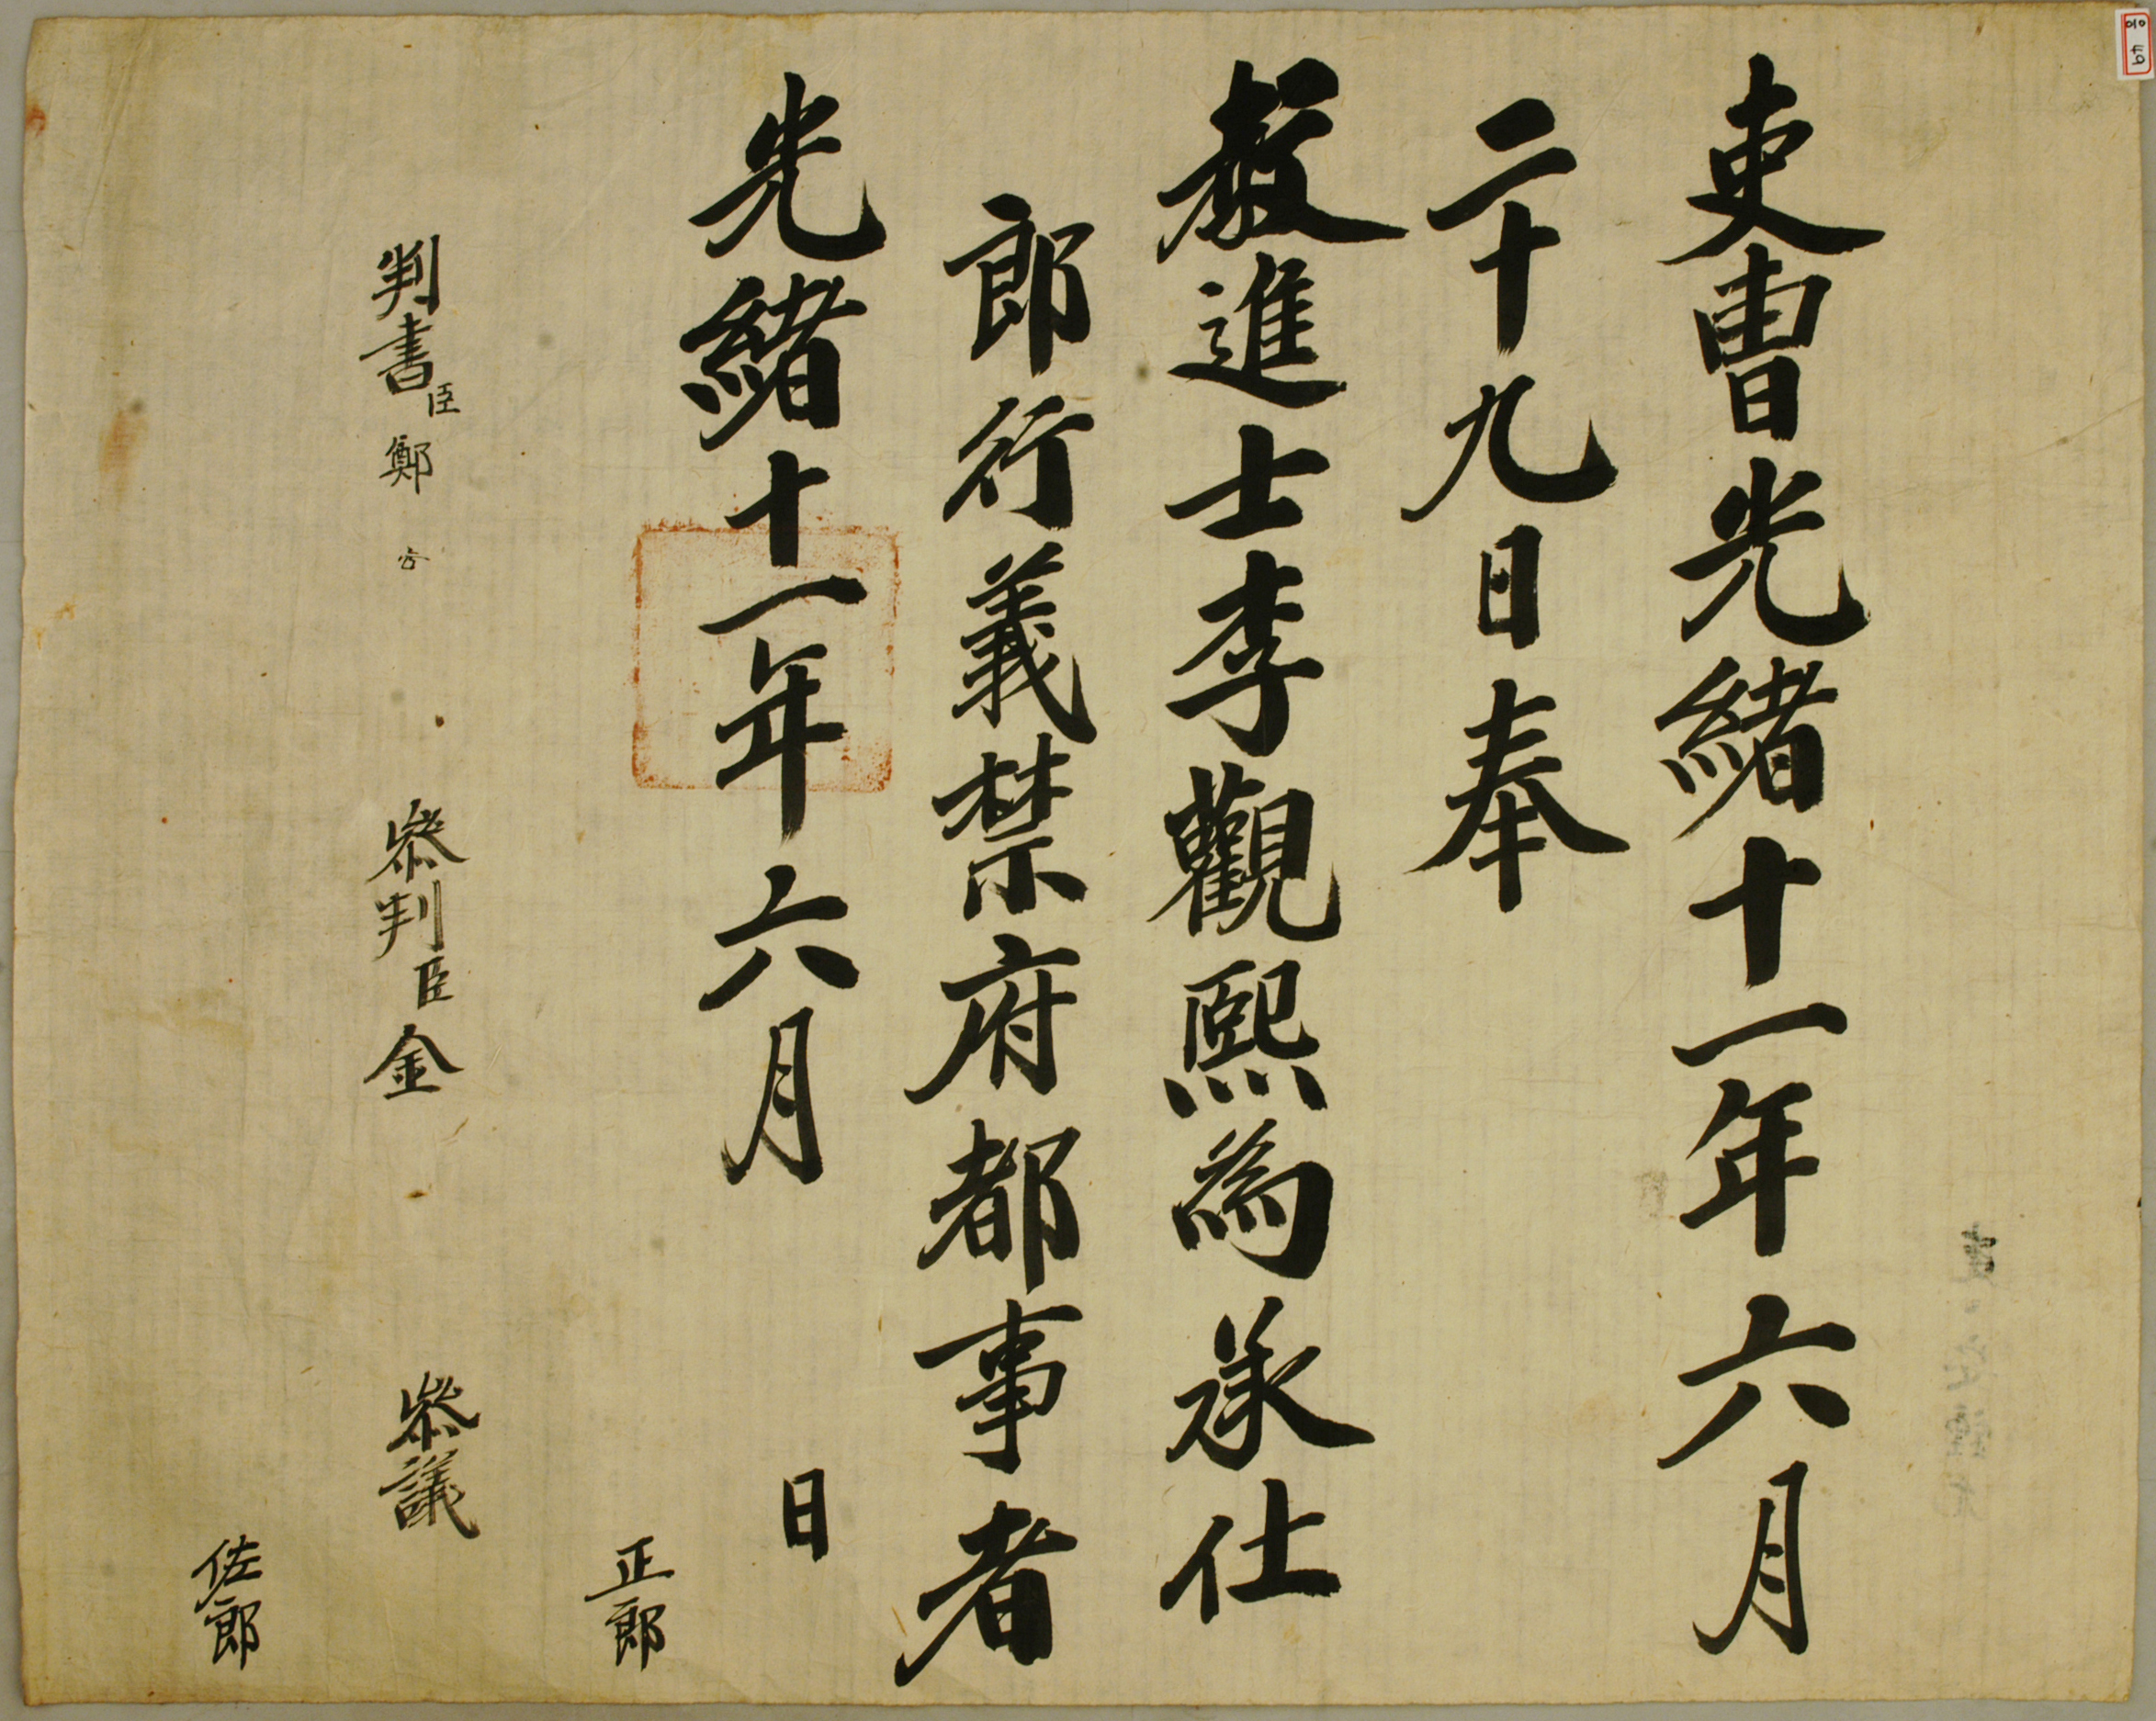 吏曹光緒十一年六月
二十九日奉
敎進士李觀熙爲承仕
郎行義禁府都事者
光緒十一年六月 日
正郎
判書臣鄭 參判臣金 參議
佐郎